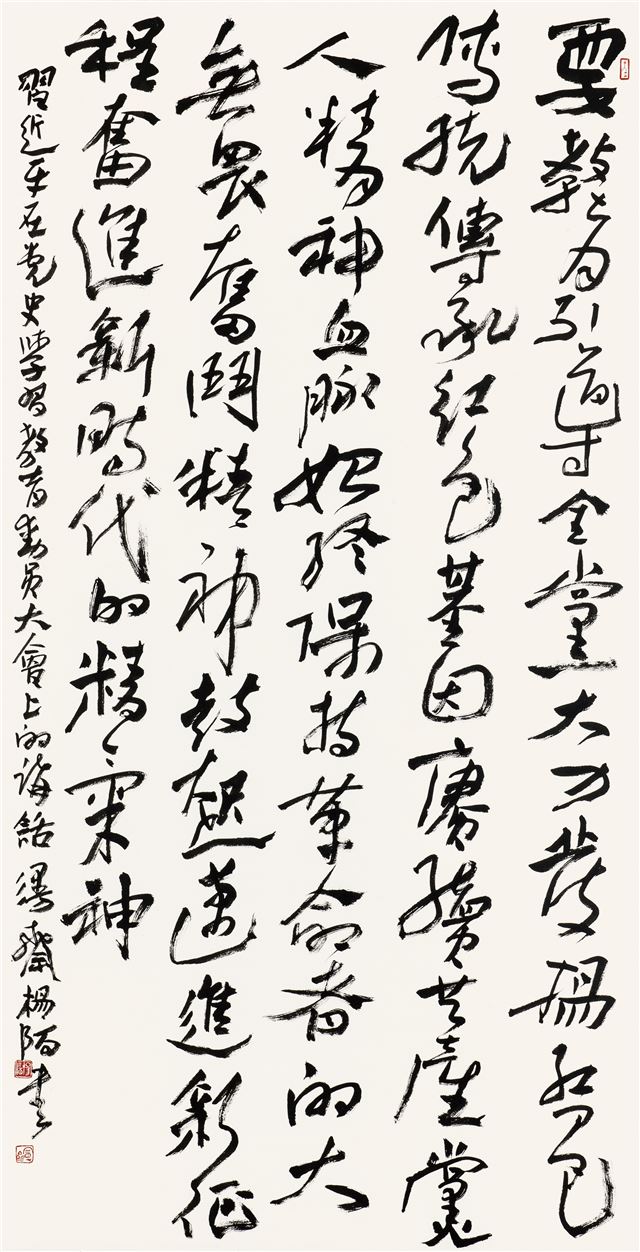 要教育引導全黨大力發揚紅色
傳統傳承紅色基因賡續共產黨
人精神血脈始終保持革命者的大
無畏奮鬥精神鼓起邁進新征
程奮進新時代的精氣神
習近平在党史學習教育動員大會上的講話 齋楊陌書